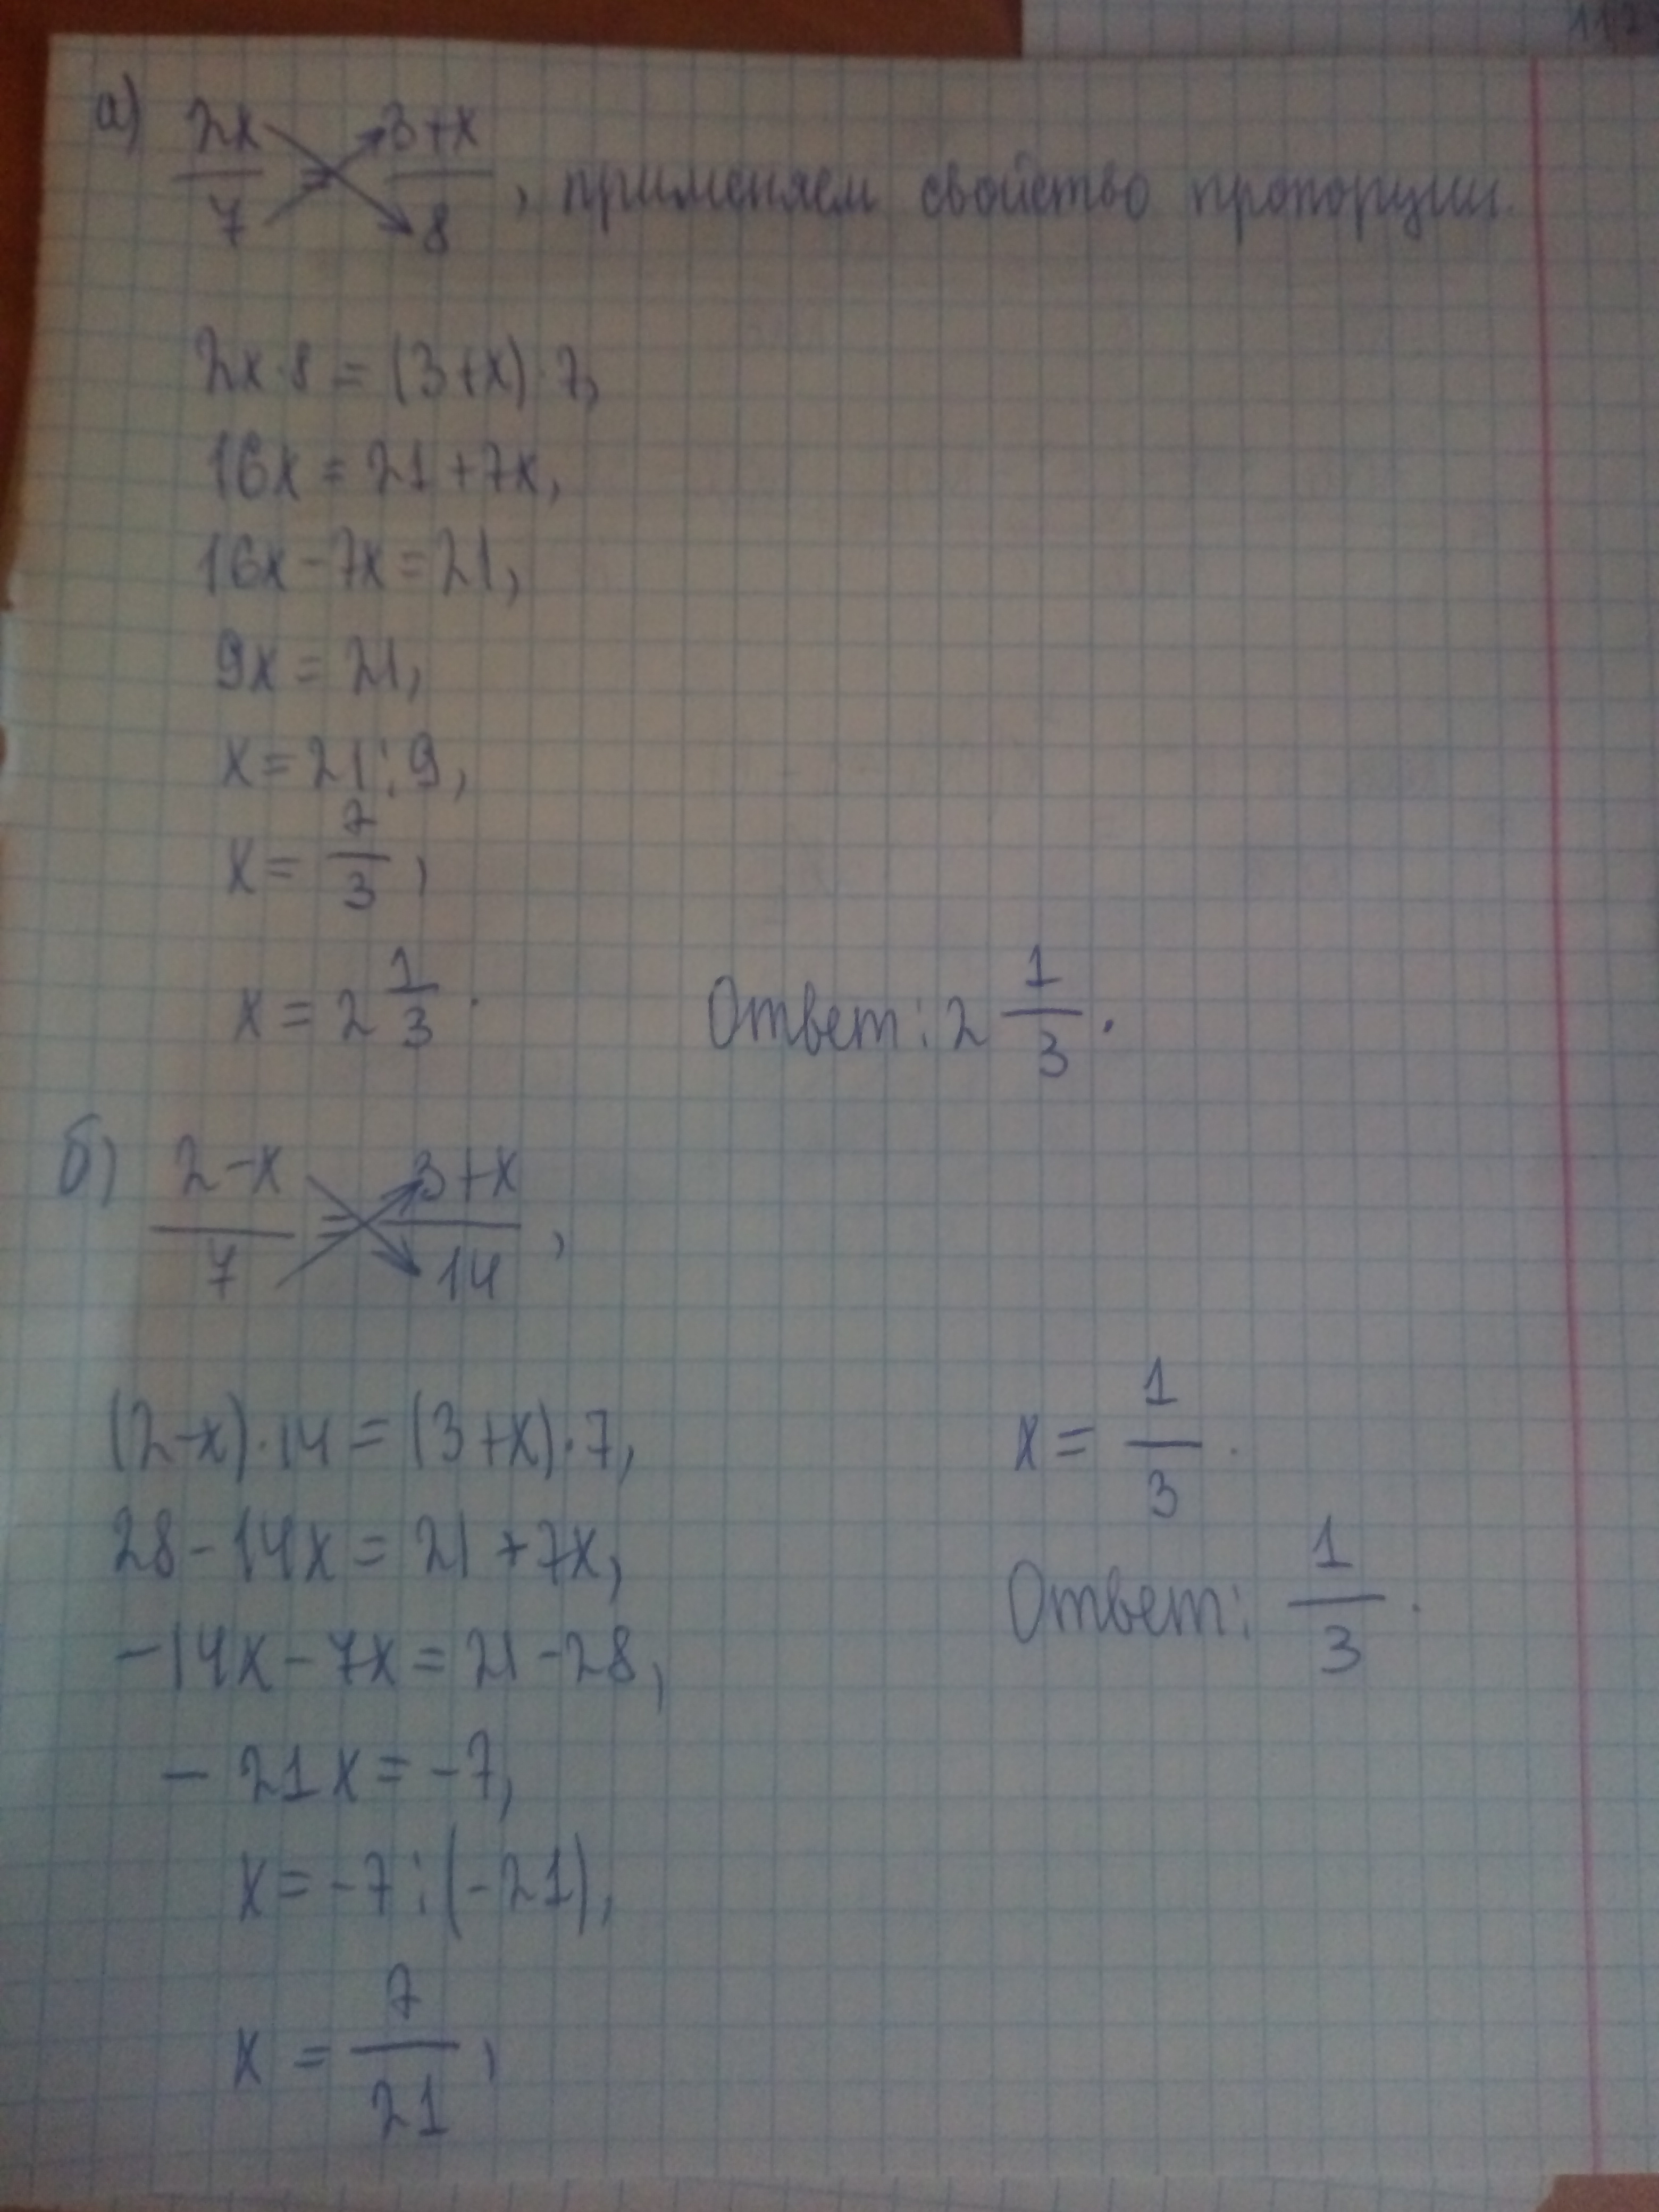 а) 2x/7 = 3+x/8, применяем свойство пропорции.
2x·8=(3+x)·7,
16x=21+7x,
16x-7x=21,
9x=21,
x=21:9,
x=7/3,
x=2 1/3.
Ответ: 2 1/3.
б) 2-x/7 = 3+x/14,
(2-x)·14=(3+x)·7,
28-14x=21+7x,
-14x-7x=21-28,
-21x=-7,
x=-7:(-21),
x=7/21,
x=1/3.
Ответ: 1/3.